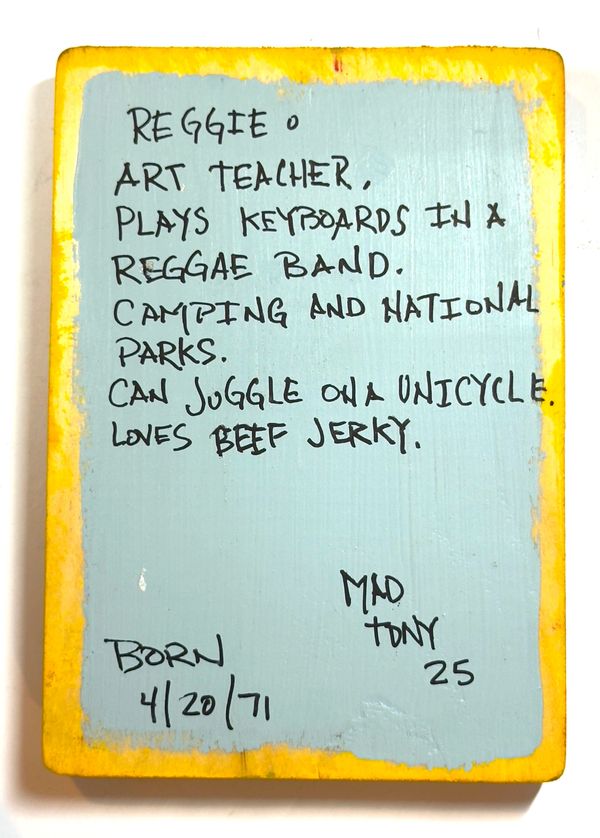 REGGIE o
ART TEACHER,
PLAYS KEYBOARDS IN A
REGGAE BAND.
CAMPING AND NATIONAL
PARKS.
CAN JUGGLE ON A UNICYCLE.
LOVES BEEF JERKY.
MAD
TONY
25
BORN
4/20/71